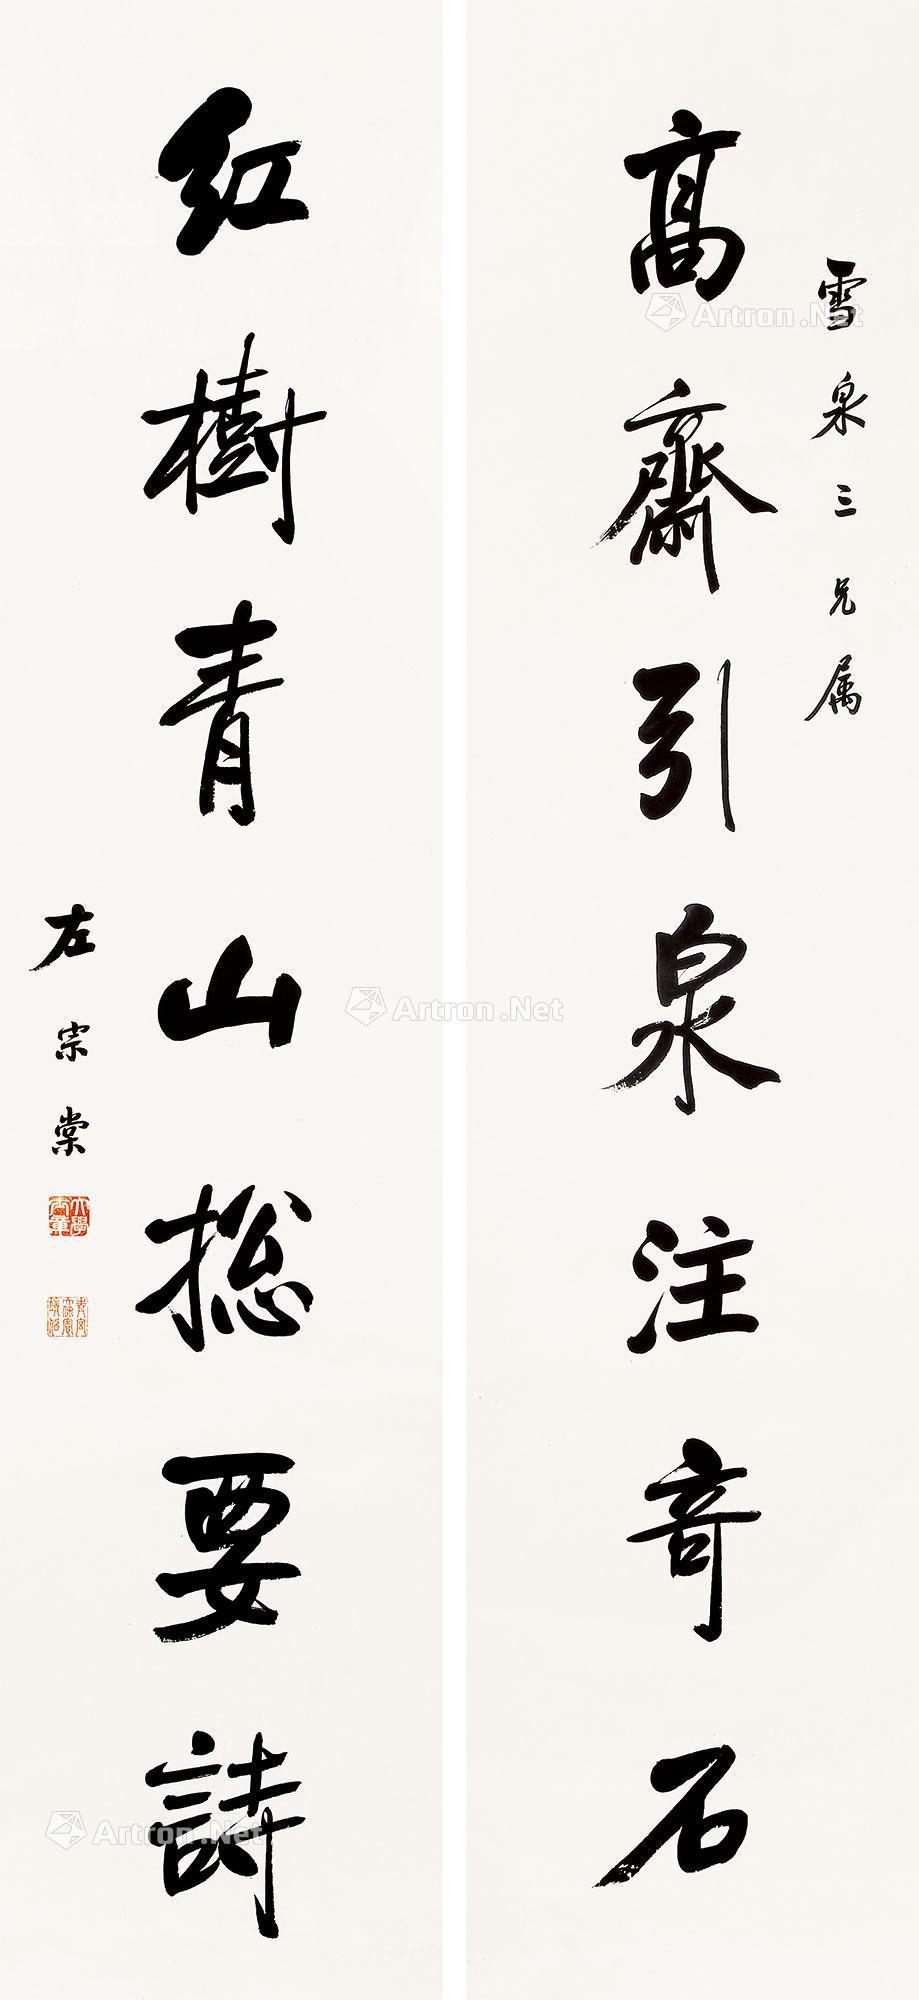 雪泉三兄属
高齋引泉注奇石
红樹青山揔要詩
左宗棠
大學士章
Artron.Net
Artron.Net
Artron.Net